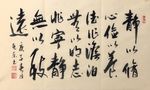 靜以修
身儉以養
德非澹泊
無以明志
非寧靜
無以致
遠